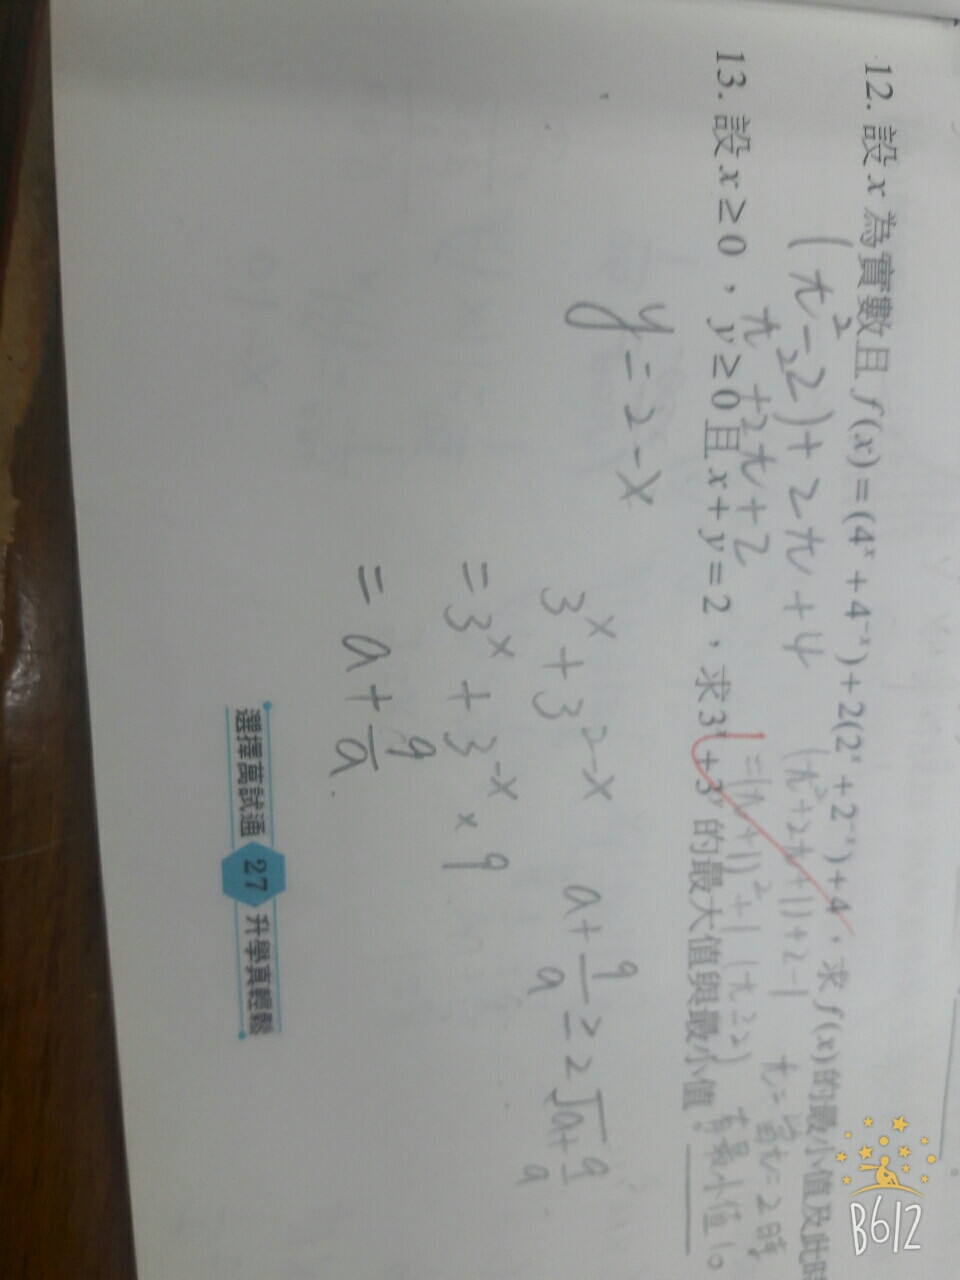 12. 設 x 為實數且 f(x)=(4ˣ+4⁻ˣ)+2(2ˣ+2⁻ˣ)+4,求 f(x)的最小值及此時
(t²-2)+2t+4 (t²+2t+1)+2-1 t=
t²+2t+2 =(t+1)²+1 (t≥2) 當t=2時
有最小值10
13. 設 x≥0,y≥0且 x+y=2,求3ˣ+3ʸ 的最大值與最小值。
y=2-x
3ˣ+3²⁻ˣ
a+9/a≥2√a+9/a
=3ˣ+3⁻ˣ×9
=a+9/a
選擇萬試通 27 升學真輕鬆
B612